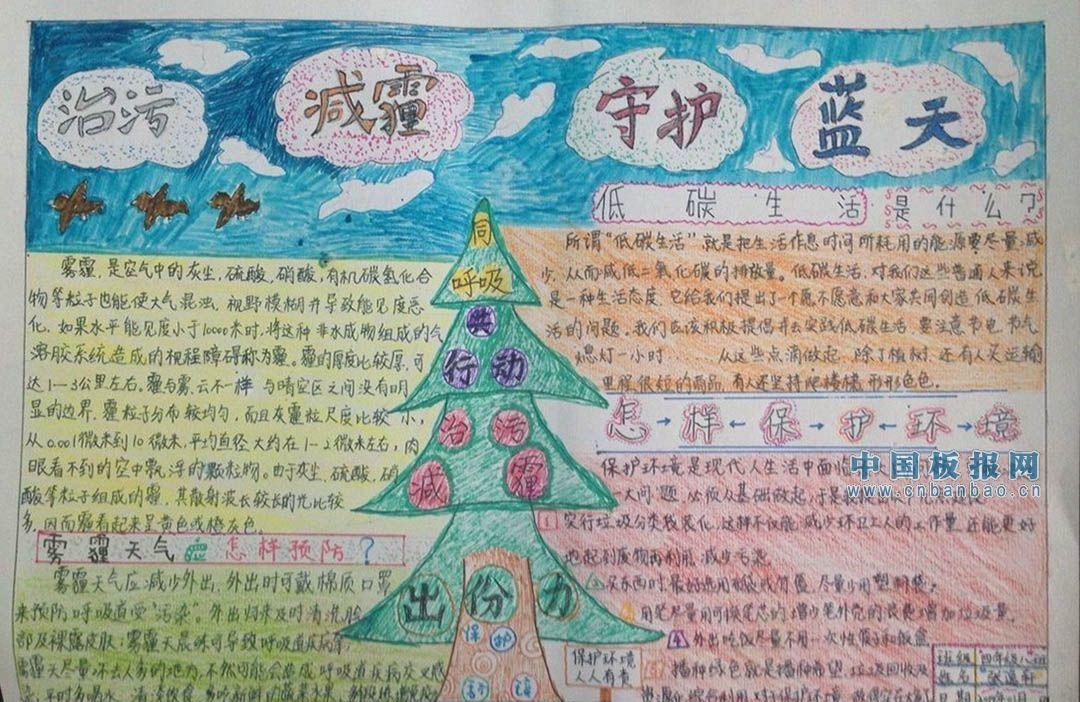 治污 减霾 守护 蓝天
低碳生活 是什么?
所谓"低碳生活"就是把生活作息时间所耗用的能源要尽量减
少,从而减低二氧化碳的排放量。低碳生活,对我们这些普通人来说
是一种生活态度,它给我们提出了个愿不愿意和大家共同创造低碳生
活的问题。我们应该积极提倡并去实践低碳生活,要注意节电、节气
熄灯一小时……从这些点滴做起,除了植树,还有人买运输
里程很短的商品,有人还坚持爬楼梯,形形色色。
雾霾,是空气中的灰尘,硫酸,硝酸,有机碳氢化合
物等粒子也能使大气混浊,视野模糊并导致能见度恶
化,如果水平能见度小于10000米时,将这种非水成物组成的气
溶胶系统造成的视程障碍称为霾。霾的厚度比较厚,可
达1-3公里左右,霾与雾、云不一样,与晴空区之间没有明
显的边界,霾粒子分布较均匀,而且灰霾粒尺度比较小,
从0.001微米到10微米,平均直径大约在1-2微米左右,肉
眼看不到的空中飘浮的颗粒物。由于灰尘,硫酸,硝
酸等粒子组成的霾,其散射波长较长的光比较
多,因而霾看起来呈黄色或橙灰色。
同
呼吸
共
行动
治污
减霾
出份力
保护
怎→样←保→护←环→境
保护环境是现代人生活中面临
一大问题,必须从基础做起,于是
中国板报网
www.cnbanbao.cn
1 实行垃圾分类袋装化,这样不仅能减少环卫工人的工作量,还能更好
地起到废物再利用,减少污染。
2 买东西时,最好选用布袋或竹篮,尽量少用塑料袋。
用笔尽量用可换笔芯的,增少笔外壳的浪费,增加垃圾量。
4 外出吃饭尽量不用一次性筷子和饭盒
5 播种绿色就是播种希望,垃圾回收及
雾霾天气 怎样预防?
雾霾天气应减少外出,外出时可戴棉质口罩
来预防呼吸道受"污染"。外出归来及时清洗脸
部及裸露皮肤;雾霾天晨咏可导致呼吸道疾病等,
雾霾天尽量不去人多的地方,不然可能会造成呼吸道疾病交叉感
保护环境
人人有责
班级 四年级八班
姓名
日期